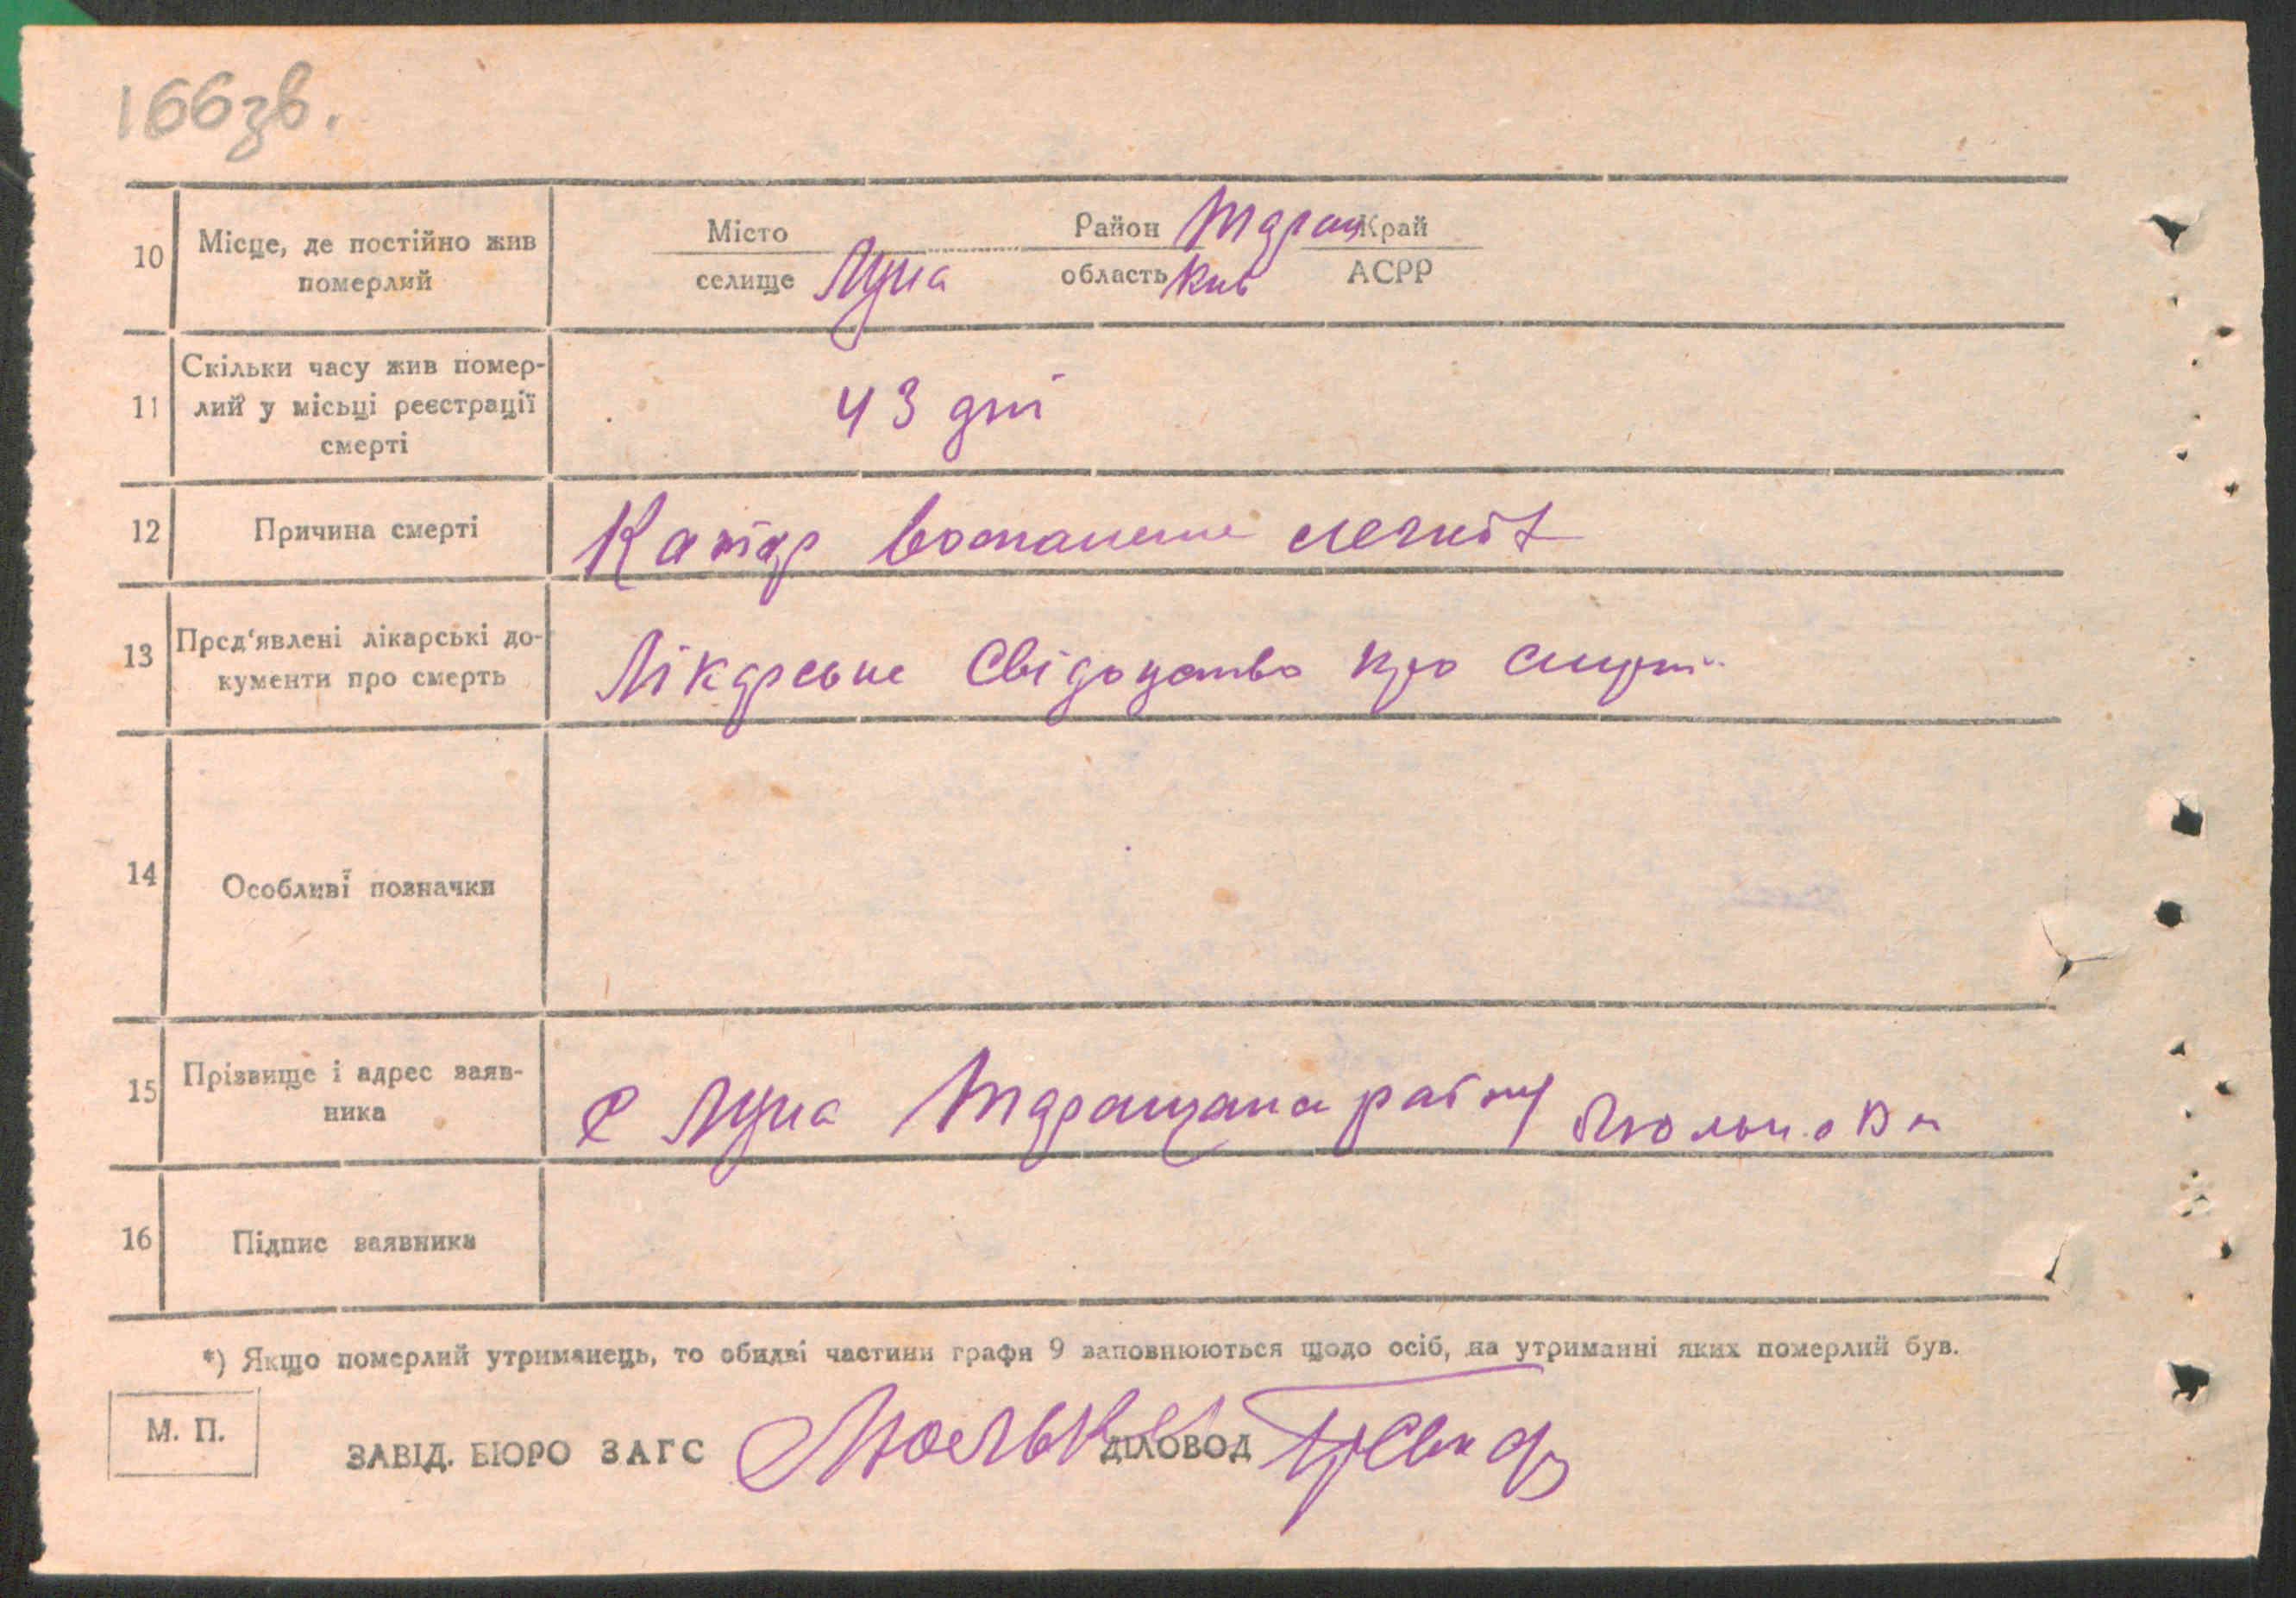 166зв.
10 Місце, де постійно жив померлий
Місто
селище Лука
Район Таращ
область Київ
Край
АСРР
11 Скільки часу жив помер-
лий у місьці реєстрації
смерті
43 дні
12 Причина смерті
Катар воспаление легких
13 Пред'явлені лікарські до-
кументи про смерть
Лікарське Свідоцтво про смерть
14 Особливі позначки
15 Прізвище і адрес заяв-
ника
с Лука Таращана району
16 Підпис заявника
*) Якщо померлий утриманець, то обидві частини графи 9 заповнюються щодо осіб, на утриманні яких померлий був.
М. П.
ЗАВІД. БЮРО ЗАГС
ДІЛОВОД